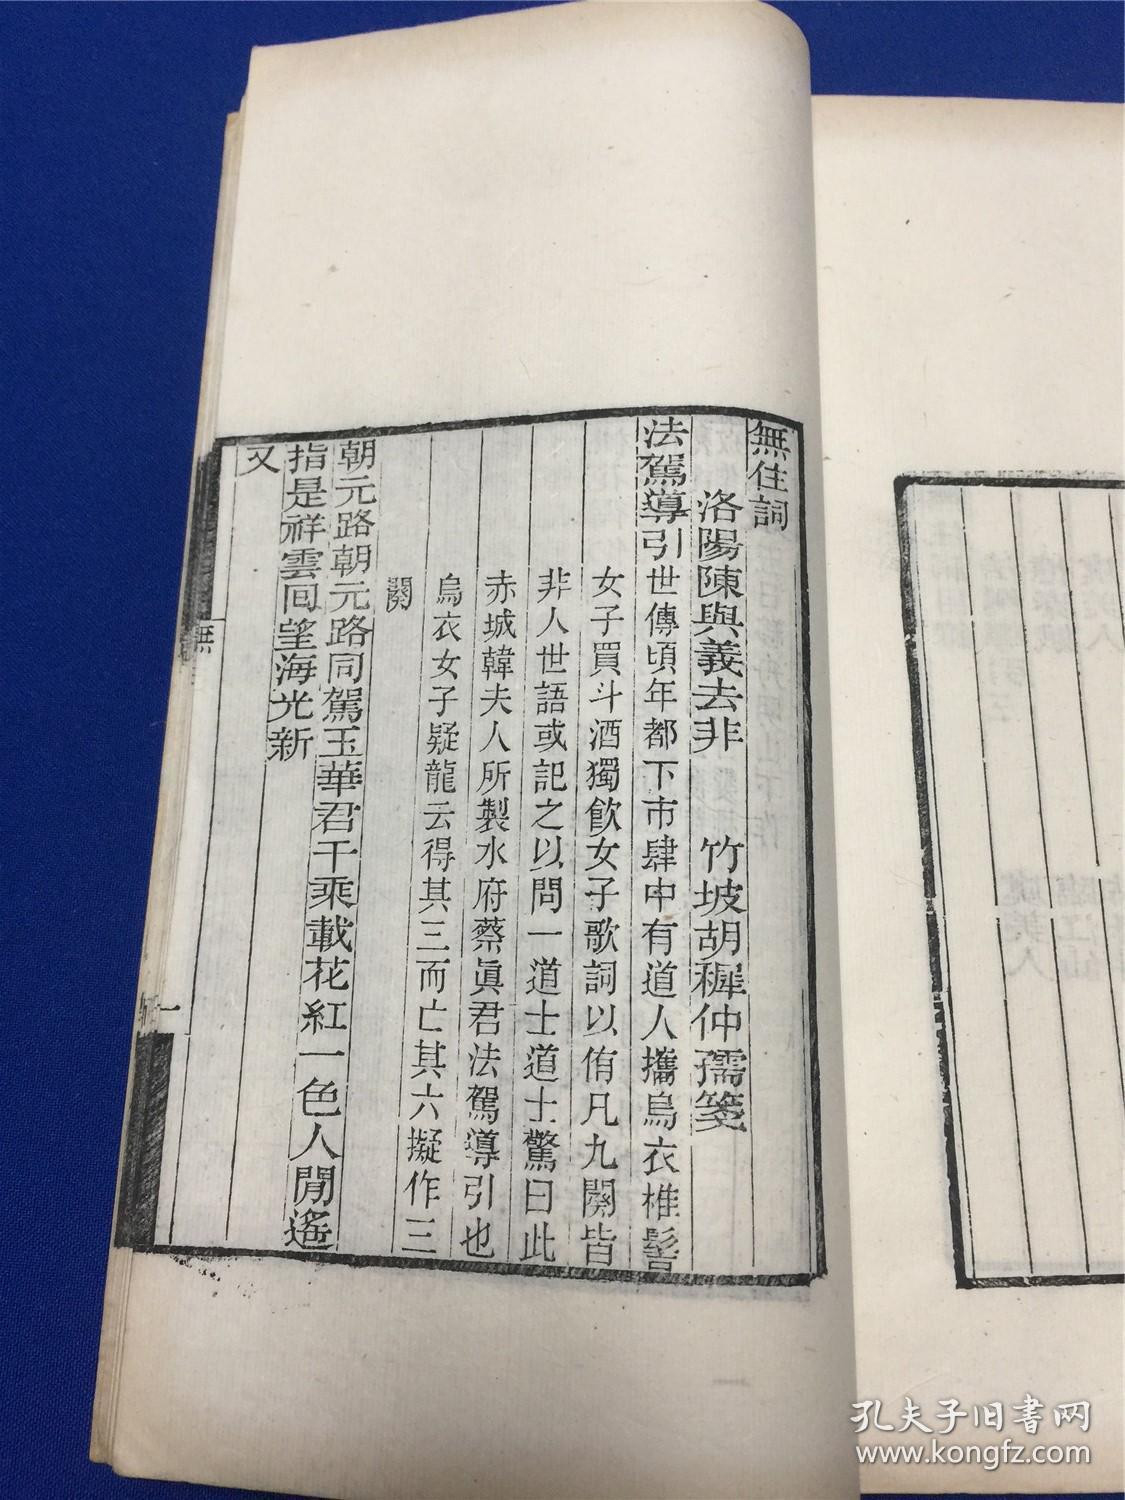 無住詞
洛陽陳與義去非　竹坡胡穉仲孺箋
法駕導引世傳頃年都下市肆中有道人攜烏衣椎髻
女子買斗酒獨飲女子歌詞以侑凡九闋皆
非人世語或記之以問一道士道士驚曰此
赤城韓夫人所製水府蔡眞君法駕導引也
烏衣女子疑龍云得其三而亡其六擬作三
闋
朝元路朝元路同駕玉華君千乘載花紅一色人閒遙
指是祥雲回望海光新
又
無
一
孔夫子旧書网
www.kongfz.com